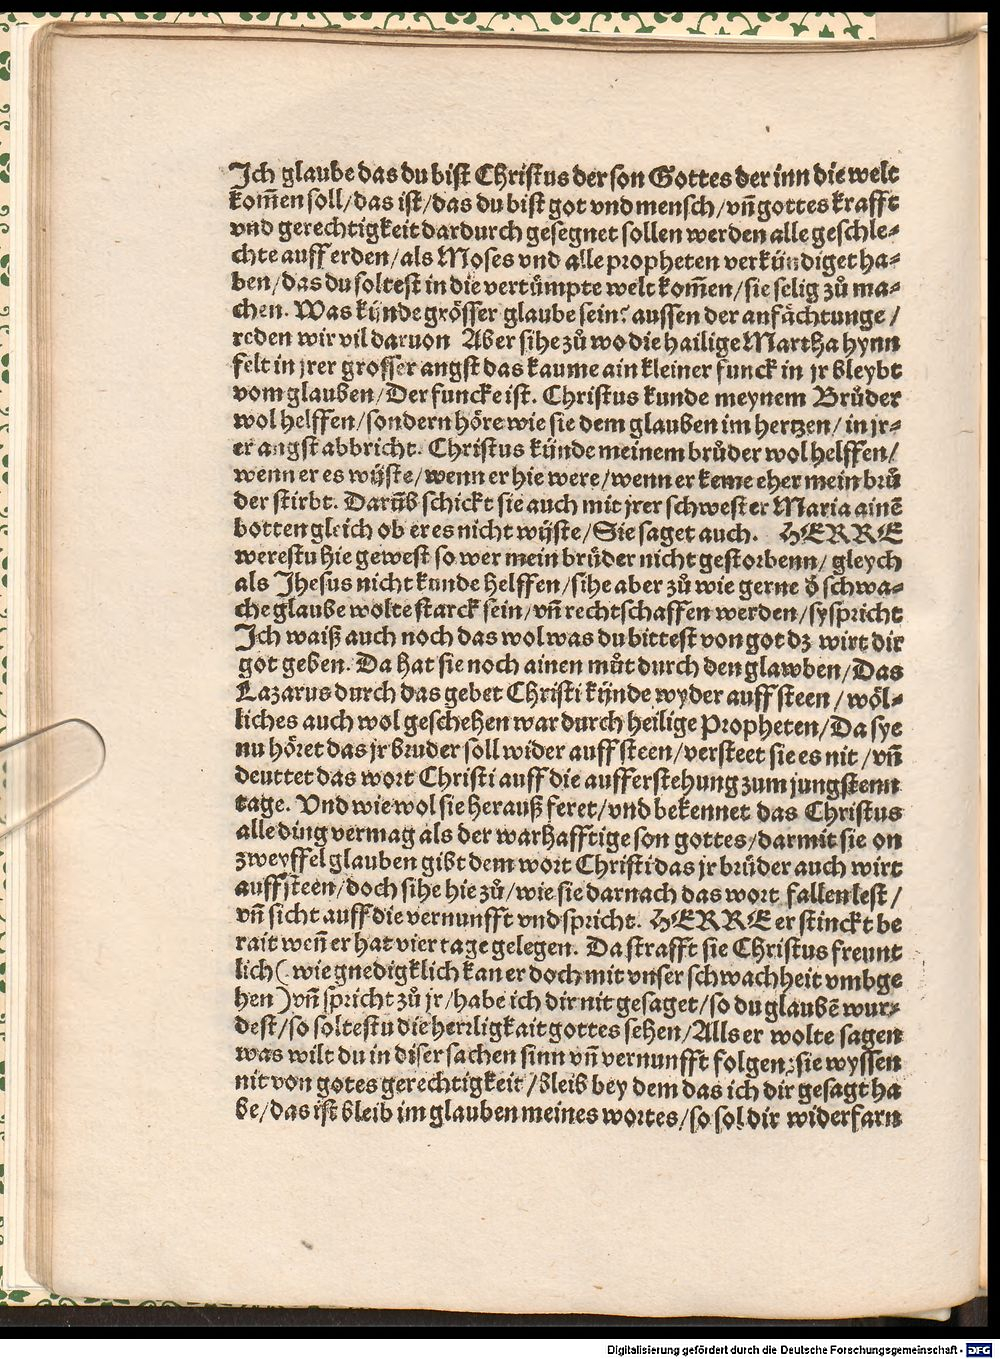 Ich glaube das du bist Christus der son Gottes der inn die welt
kom̃en soll/das ist/das du bist got vnd mensch/vñ gottes krafft
vnd gerechtigkeit dardurch gesegnet sollen werden alle geschle⸗
chte auff erden/als Moses vnd alle propheten verkündiget ha⸗
ben/das du soltest in die vertümpte welt kom̃en/sie selig zů ma⸗
chen. Was künde grösser glaube sein? aussen der anfächtunge/
reden wir vil daruon Aber sihe zů wo die hailige Martha hynn
felt in jrer grosser angst das kaume ain kleiner funck in jr bleybt
vom glauben/Der funcke ist. Christus kunde meynem Brůder
wol helffen/sondern höre wie sie dem glauben im hertzen/in jr⸗
er angst abbricht. Christus künde meinem brůder wol helffen/
wenn er es wÿste/wenn er hie were/wenn er keme eher mein brů
der stirbt. Darũb schickt sie auch mit jrer schwester Maria ainẽ
botten gleich ob er es nicht wÿste/Sie saget auch. HERRE
werestu hie gewest so wer mein brůder nicht gestorbenn/gleych
als Jhesus nicht kunde helffen/sihe aber zů wie gerne d̕ schwa⸗
che glaube wolte starck sein/vñ rechtschaffen werden/sy spricht
Ich waiß auch noch das wol was du bittest von got dz wirt dir
got geben. Da hat sie noch ainen můt durch den glawben/Das
Lazarus durch das gebet Christi künde wyder auff steen/wöl⸗
liches auch wol geschehen war durch heilige Propheten/Da sye
nu höret das jr bruder soll wider auff steen/versteet sie es nit/vñ
deuttet das wort Christi auff die aufferstehung zum jungstenn
tage. Vnd wie wol sie herauß feret/vnd bekennet das Christus
alle ding vermag als der warhafftige son gottes/darmit sie on
zweyffel glauben gibt dem wort Christi das jr brůder auch wirt
auffsteen/doch sihe hie zů/wie sie darnach das wort fallen lest/
vñ sicht auff die vernunfft vnd spricht. HERRE er stinckt be
rait weñ er hat vier tage gelegen. Da strafft sie Christus freunt
lich (wie gnedigklich kan er doch mit vnser schwachheit vmbge
hen) vñ spricht zů jr/habe ich dir nit gesaget/so du glaubẽ wur⸗
dest/so soltestu die herrligkait gottes sehen/Alls er wolte sagen
was wilt du in diser sachen sinn vñ vernunfft folgen: sie wyssen
nit von gotes gerechtigkeit/bleib bey dem das ich dir gesagt ha
be/das ist bleib im glauben meines wortes/so sol dir widerfarn
Digitalisierung gefördert durch die Deutsche Forschungsgemeinschaft - DFG